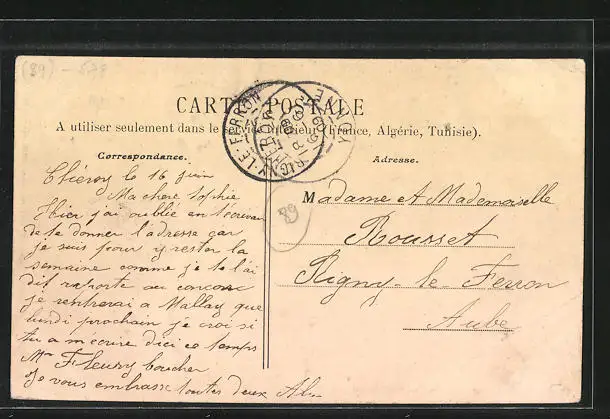 (89) - 578
CARTE POSTALE
A utiliser seulement dans le service intérieur (France, Algérie, Tunisie).
Correspondance.
Adresse.
RIGNY-LE-FERRON
89
le 16 juin
Ma chere Sophie
Hier j'ai oublié en t'écrivan
de te donner l'adresse car
je suis pour y rester la
semaine comme je te l'ai
dit raporte au concour
je rentrerai a Mallay que
lundi prochain je croi si
tu a m'ecrire dici ce temps
Mr Fleury boucher
Je vous embrasse toutes deux
Madame et Mademoiselle
Rousset
Rigny-le-Ferron
Aube